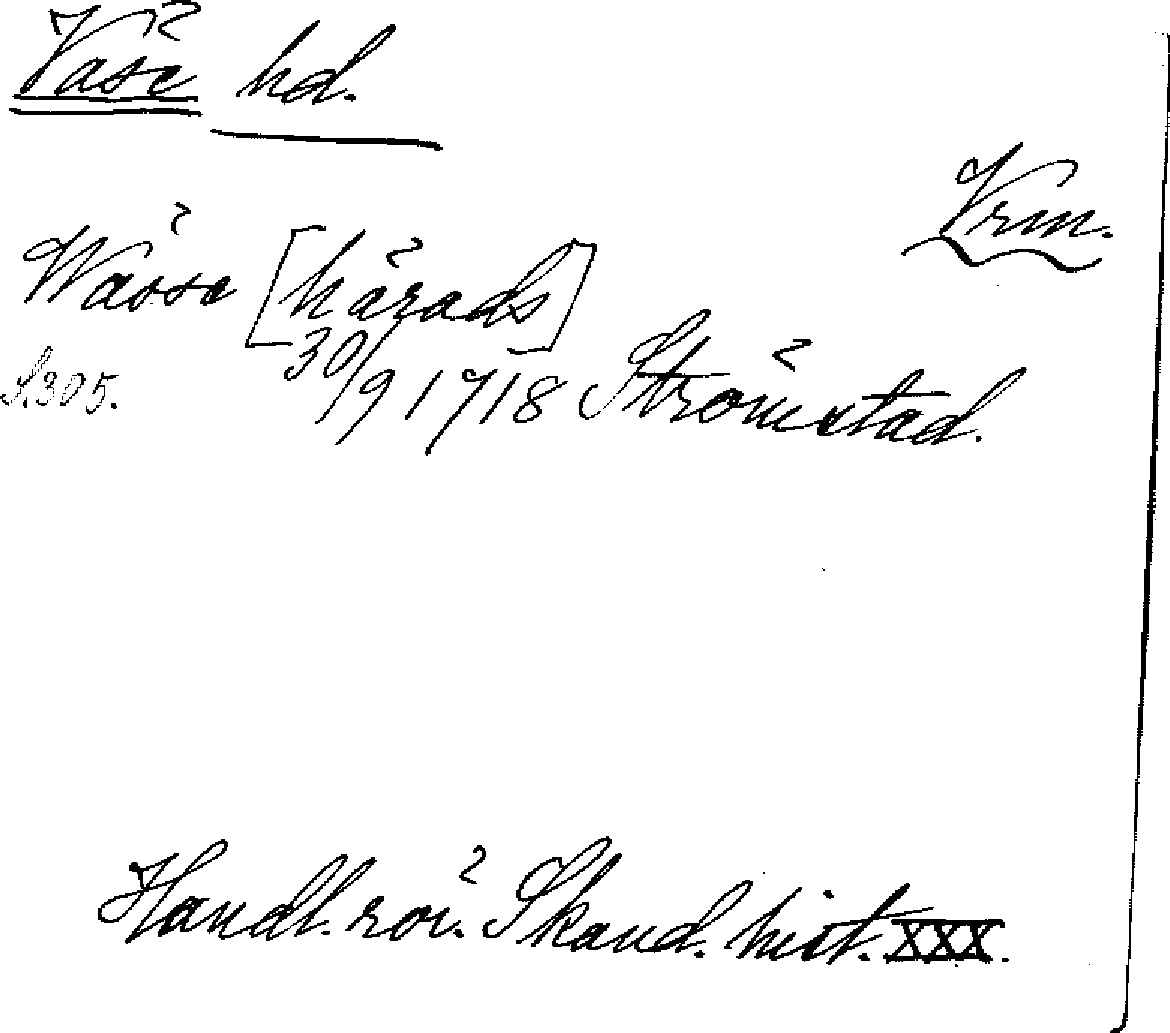 Väse hd.
Vrm.
Wässe [härads]
S. 305. 30/9 1718 Strömstad.
Handl. rör. Skand. hist. XXX.